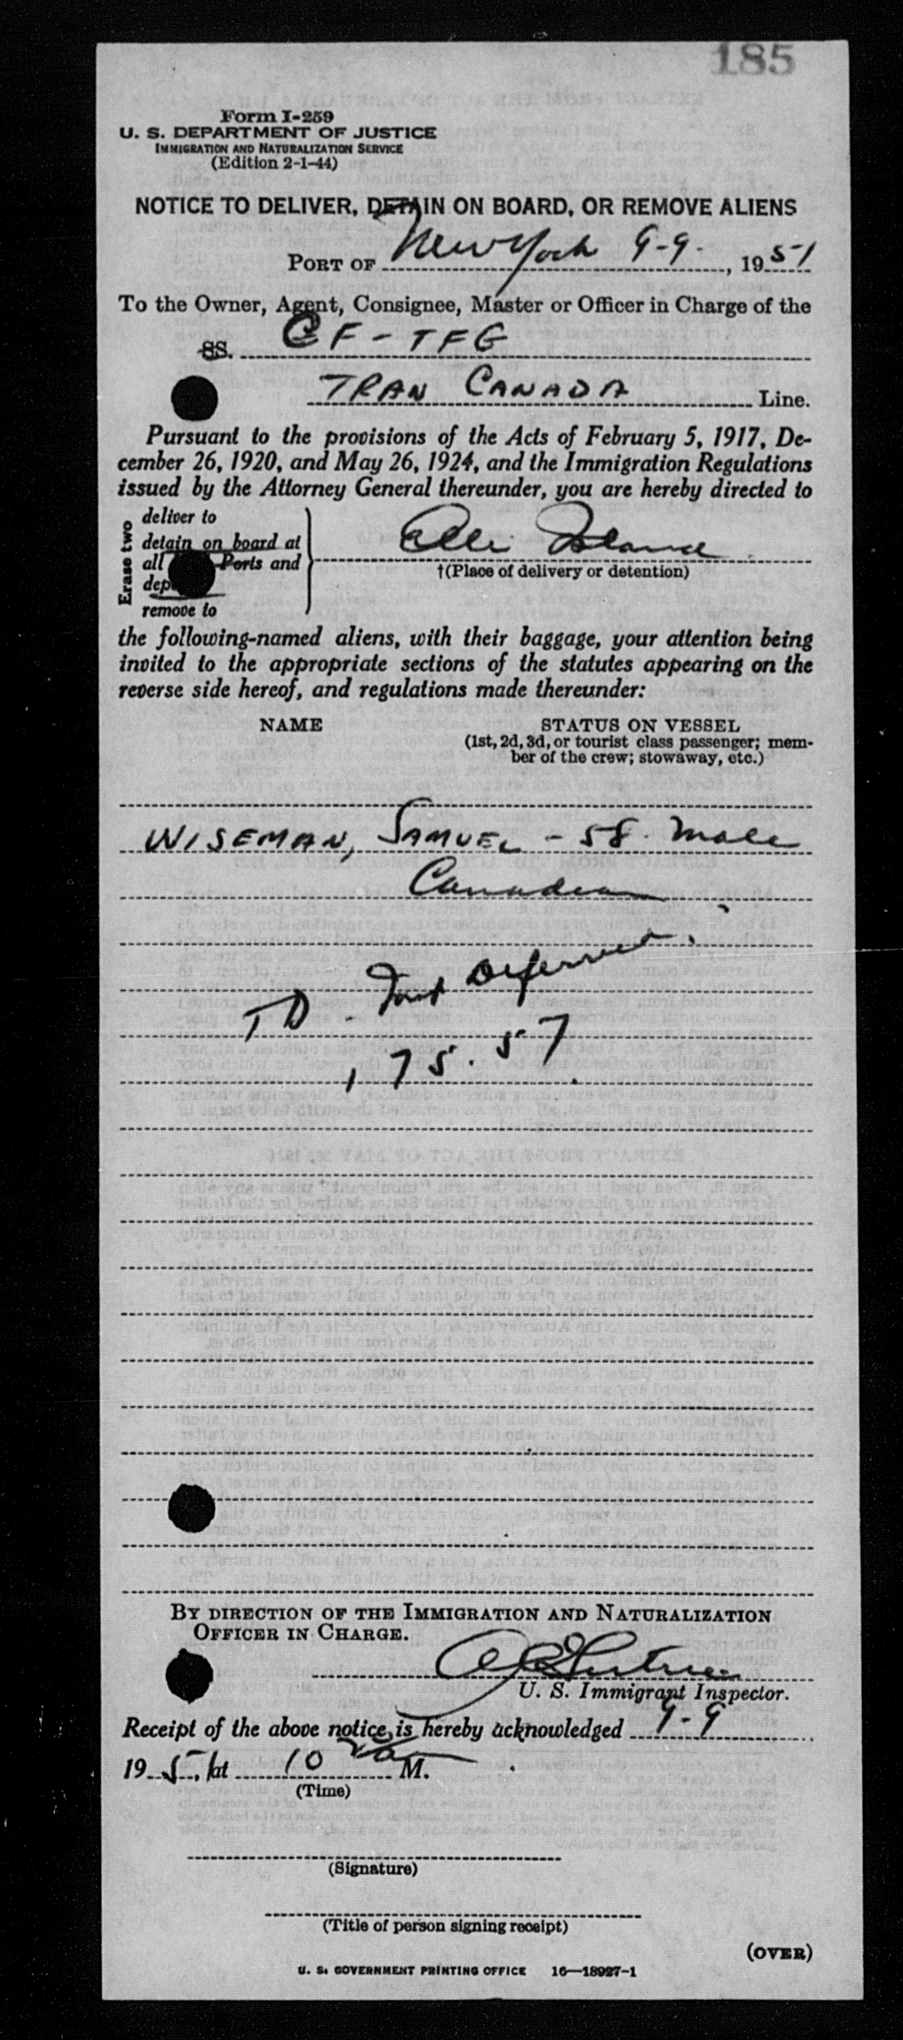 185
Form I-259
U. S. DEPARTMENT OF JUSTICE
IMMIGRATION AND NATURALIZATION SERVICE
(Edition 2-1-44)
NOTICE TO DELIVER, DETAIN ON BOARD, OR REMOVE ALIENS
PORT OF New York 9-9-, 1951
To the Owner, Agent, Consignee, Master or Officer in Charge of the
SS. CF-TFG
TRAN CANADA Line.
Pursuant to the provisions of the Acts of February 5, 1917, De-
cember 26, 1920, and May 26, 1924, and the Immigration Regulations
issued by the Attorney General thereunder, you are hereby directed to
Erase two
deliver to
detain on board at
all Ports and
remove to
Island
†(Place of delivery or detention)
the following-named aliens, with their baggage, your attention being
invited to the appropriate sections of the statutes appearing on the
reverse side hereof, and regulations made thereunder:
NAME
STATUS ON VESSEL
(1st, 2d, 3d, or tourist class passenger; mem-
ber of the crew; stowaway, etc.)
WISEMAN, SAMUEL - 58. Male
Canadian
TD - Deferred.
175.57
BY DIRECTION OF THE IMMIGRATION AND NATURALIZATION
OFFICER IN CHARGE.
U. S. Immigrant Inspector.
Receipt of the above notice is hereby acknowledged 9-9
1951 at 10 M.
(Time)
(Signature)
(Title of person signing receipt)
(OVER)
U. S. GOVERNMENT PRINTING OFFICE 16—18927-1